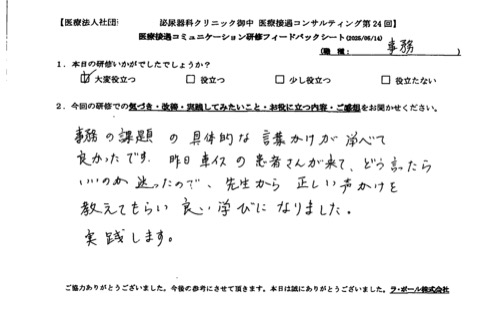 【医療法人社団　　　泌尿器科クリニック御中 医療接遇コンサルティング第24回】
医療接遇コミュニケーション研修フィードバックシート(2025/06/14)
(職 種: 事務 )
1. 本日の研修いかがでしたでしょうか?
☑ 大変役立つ □ 役立つ □ 少し役立つ □ 役立たない
2. 今回の研修での気づき・改善・実践してみたいこと・お役に立つ内容・ご感想をお聞かせください。
事務の課題の具体的な言葉かけが学べて
良かったです。昨日車イスの患者さんが来て、どう言ったら
いいのか迷ったので、先生から正しい声かけを
教えてもらい良い学びになりました。
実践します。
ご協力ありがとうございました。今後の参考にさせて頂きます。本日は誠にありがとうございました。ラ・ポール株式会社